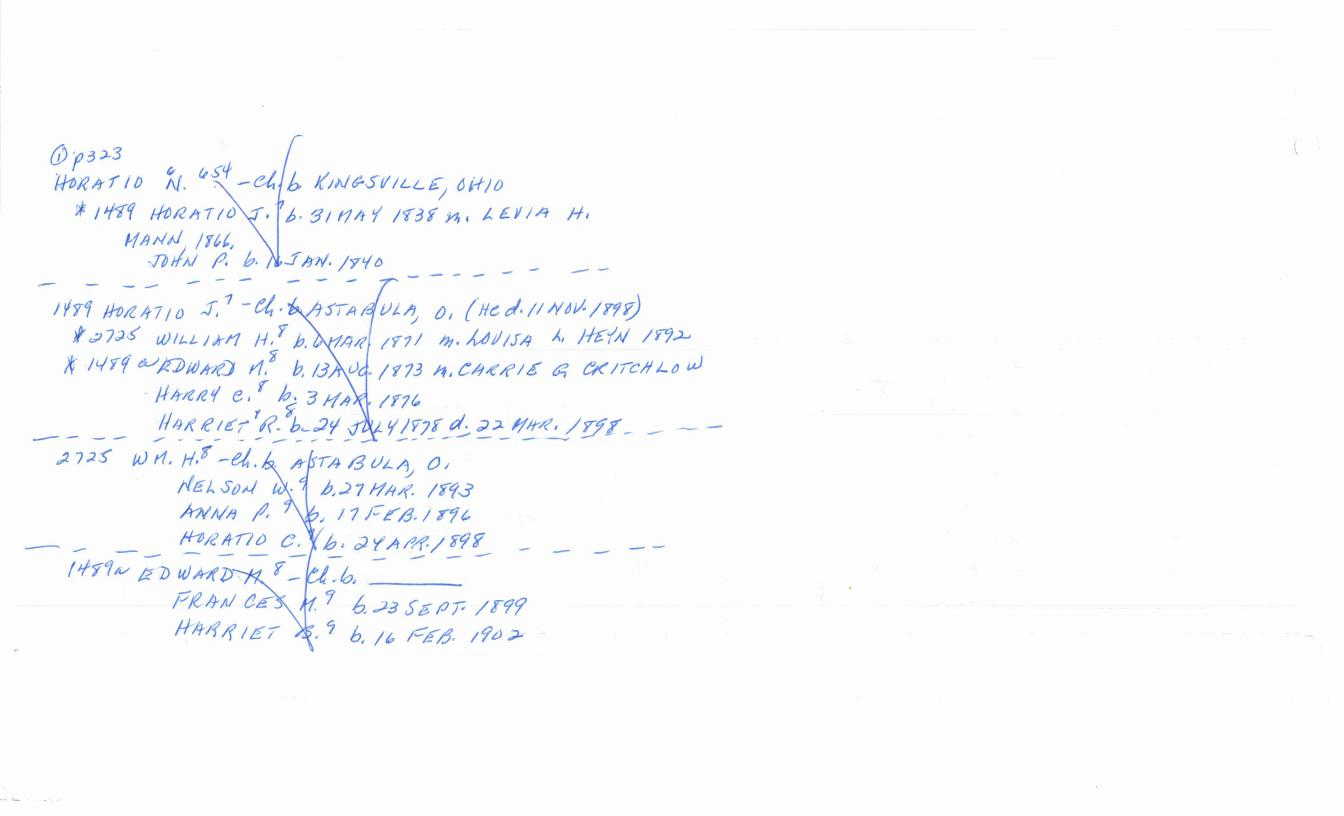 ① p323
HORATIO N.⁶ 654 - Ch. b. KINGSVILLE, OHIO
* 1489 HORATIO J.⁷ b. 31 MAY 1838 m. LEVIA H.
MANN, 1866.
JOHN P. b. 16 JAN. 1840
1489 HORATIO J.⁷ - Ch. b. ASTABULA, O. (He d. 11 NOV. 1898)
* 2725 WILLIAM H.⁸ b. 6 MAR. 1871 m. LOUISA L. HEYN 1892
* 1489a EDWARD M.⁸ b. 13 AUG. 1873 m. CARRIE G. CRITCHLOW
HARRY C.⁸ b. 3 MAR. 1876
HARRIET R.⁸ b. 24 JULY 1878 d. 22 MAR. 1898
2725 WM. H.⁸ - Ch. b. ASTABULA, O.
NELSON W.⁹ b. 27 MAR. 1893
ANNA P.⁹ b. 17 FEB. 1896
HORATIO C. b. 24 APR. 1898
1489a EDWARD M.⁸ - Ch. b. ______
FRANCES M.⁹ b. 23 SEPT. 1899
HARRIET B.⁹ b. 16 FEB. 1902